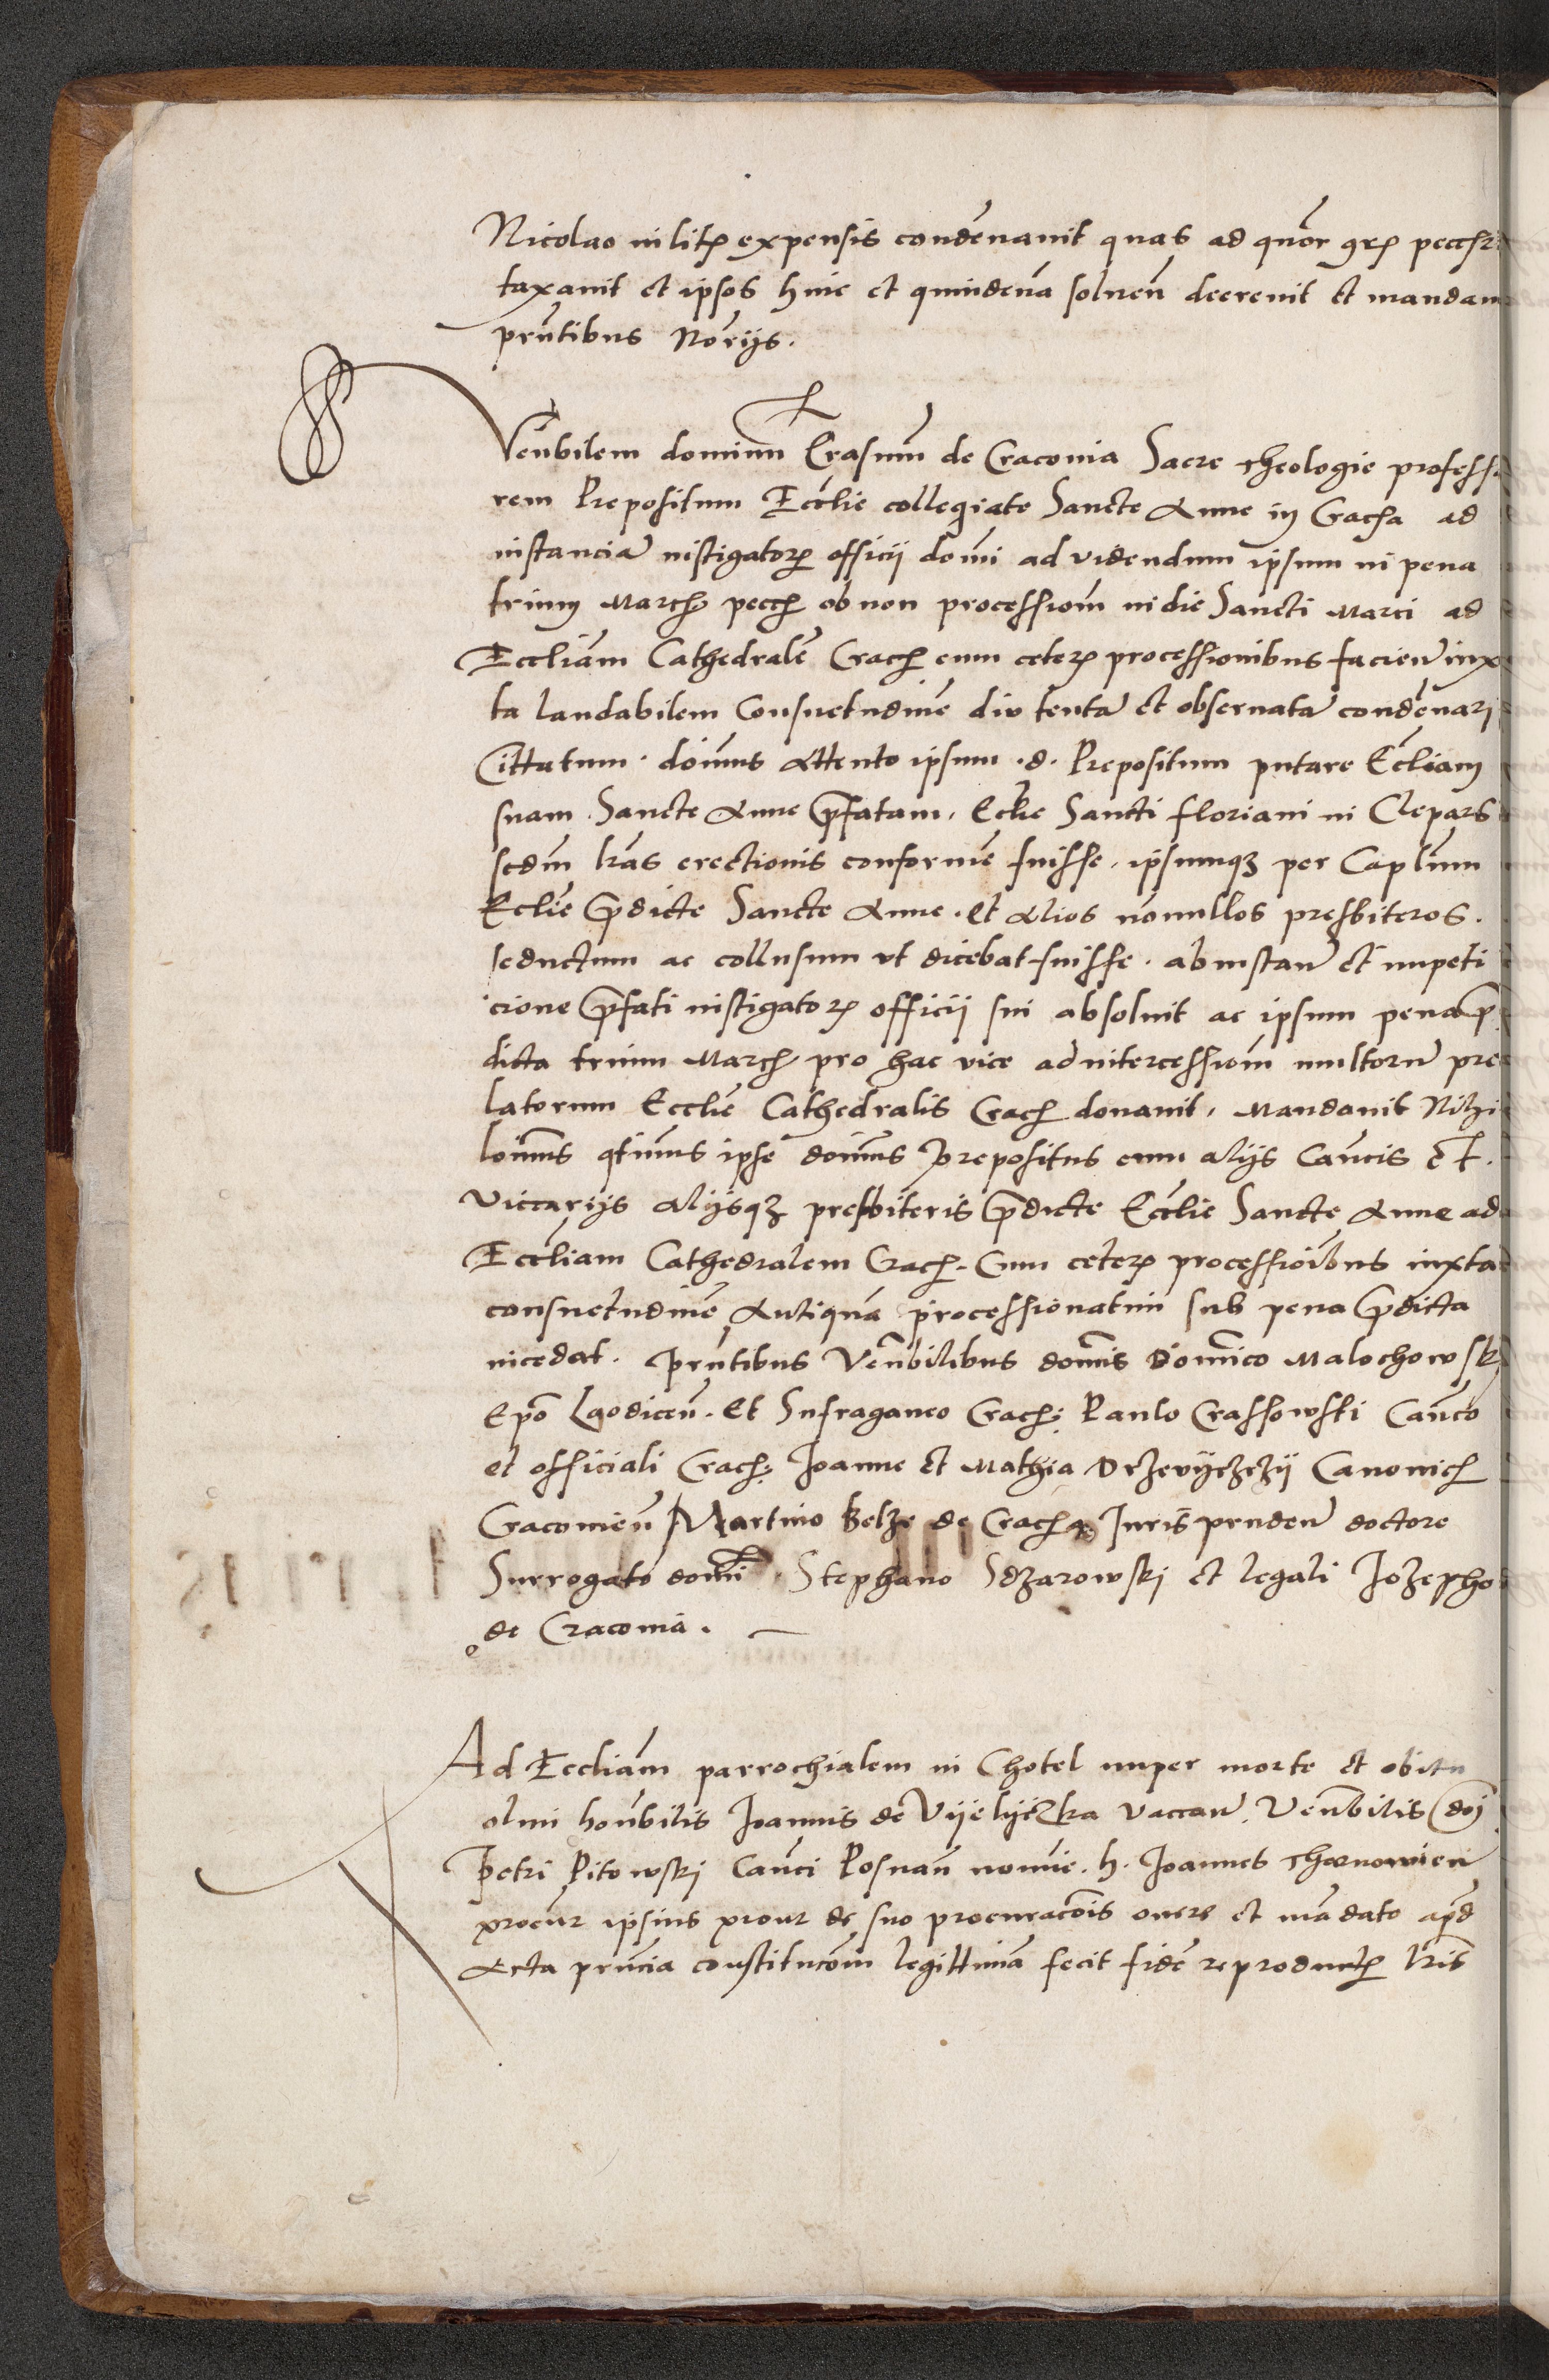 Nicolao in litis expensis condēnavit quas ad quōr grs pecch
taxavit et ipsos hinc et quindenā solven decrevit et mandavi
prntibus Noriis.
Venbilem dominū Erasmū de Cracovia Sacre theologie professo
rem Prepositum Ecclie collegiate Sancte Anne in Gracha ad
instanciā instigatoris officii domi ad videndum ipsum in pena
trium March pecch ob non processiom in die Sancti Marci ad
Eccliam Cathedralē Crach cum ceteris processionibus facien iux
ta laudabilem Consuetudinē diu tentā et observatā condēnari
Cittatum. domnus attento ipsum .d. Prepositum putare Eccliam
suam Sancte Anne prefatam, Ecclie Sancti Floriani in Clepars
scdm lras erectionis conformē fuisse, ipsumqz per Caplum
Ecclie predicte Sancte Anne. et alios nōnullos presbiteros.
seductum ac collusum ut dicebat fuisse. ab instan et impeti
cione prefati instigatoris officii sui absolvit ac ipsum pena pre
dicta trium March pro hac vice ad intercessiom multorū pre
latorum Ecclie Cathedralis Crach donavit, Mandavit Nihi
lominus qtinus ipse domnus prepositus cum aliis Canicis et
Viccariis aliisqz presbiteris predicte Ecclie Sancte Anne ad
Eccliam Cathedralem Crach. Cum ceteris processioibus iuxta
consuetudinē Antiquā processionatim sub pena predicta
incedat. prntibus Venbilibus domis Domico Malochowsk
Epo Laodicen. et Sufraganeo Crach. Paulo Crassowski Canco
et officiali Crach. Joanne et Mathia Drzevyczczy Canonich
Cracovien Martino Belze de Crach Juris pruden doctore
Surrogato domi. Stephano Sdzarowski et legali Jozepho
de Cracovia.
Ad Eccliam parrochialem in Chotel nuper morte et obitu
olim honbilis Joannis de Vyelyczka vaccan. Venbilis doi
Petri Pitowski Canci Posnan nomie. h. Joannes Thxnowien
procur ipsius prout de suo procuracois onere et mādato apd
Acta prncia constitucom legittimā fecit fidē reproductis lris